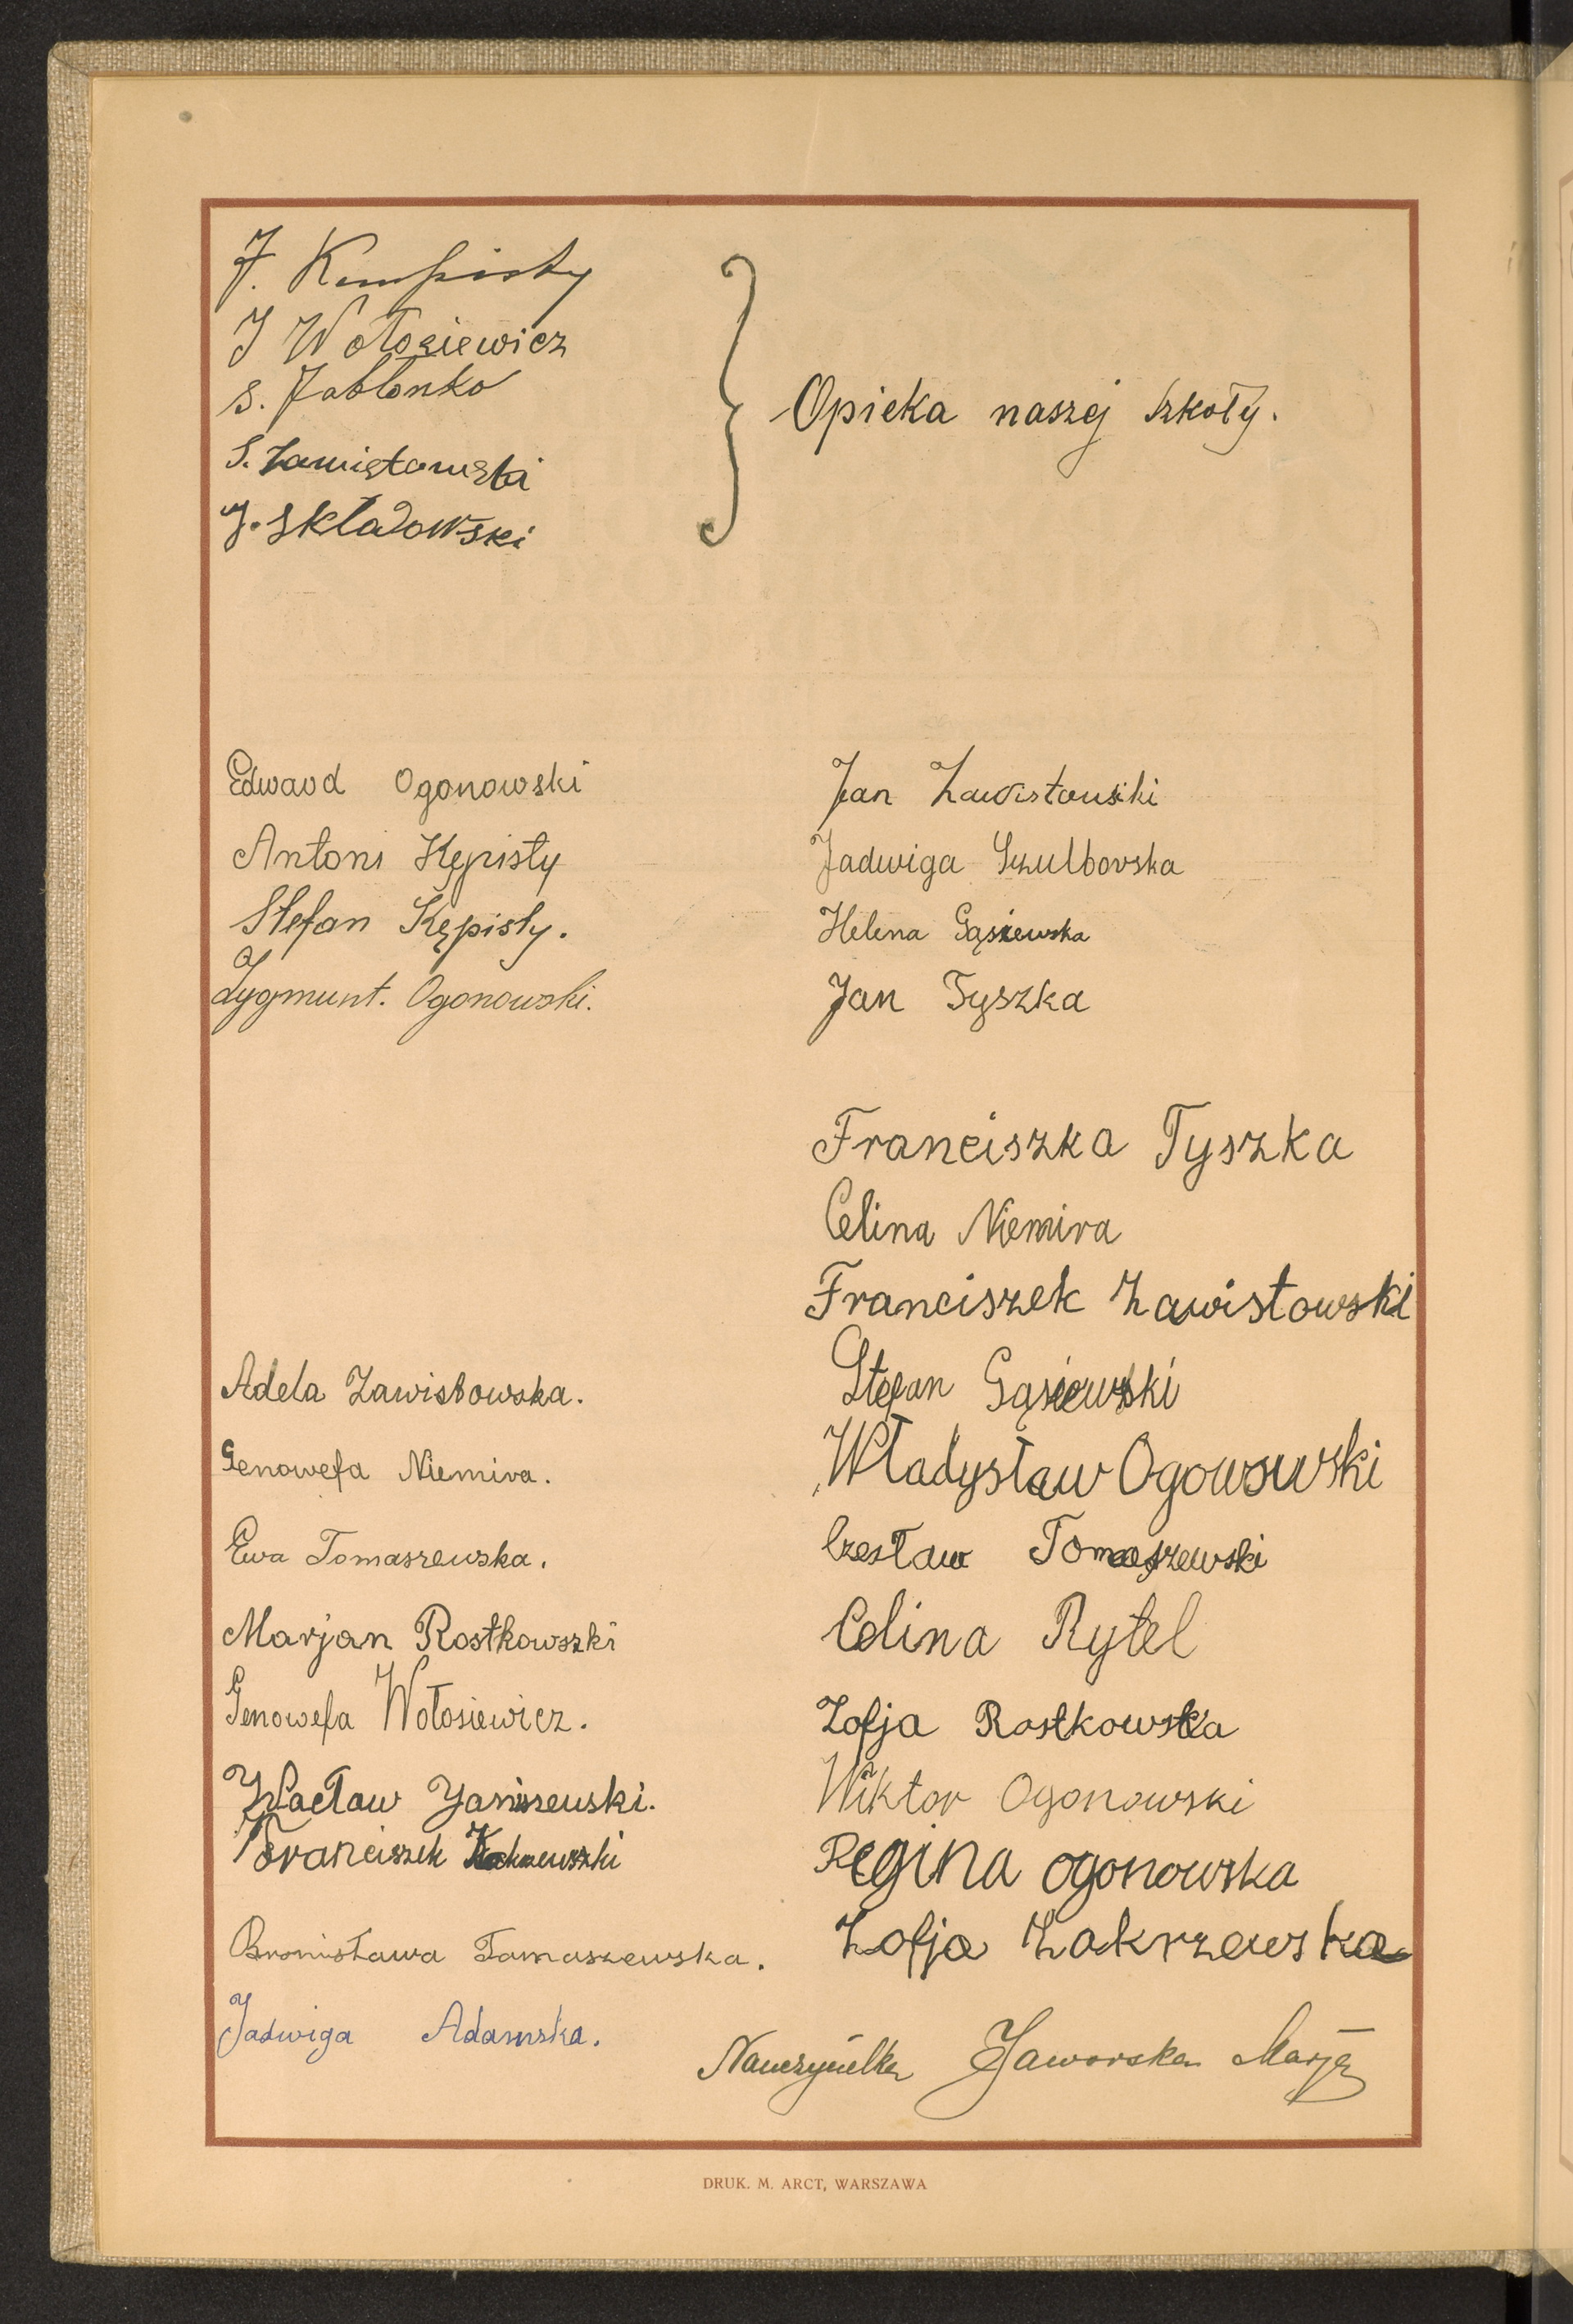 J. Kempisty
J Wołosiewicz
S. Jabłonko
S. Zawistowski
J. Składowski
Opieka naszej szkoły.
Edward Ogonowski
Antoni Kępisty
Stefan Kępisty.
Zygmunt. Ogonowski.
Adela Zawistowska.
Genowefa Niemira.
Ewa Tomaszewska.
Marjan Rostkowszki
Genowefa Wołosiewicz.
Wacław Janiszewski.
Franciszek
Bronisława Tomaszewska.
Jadwiga Adamska.
Jan Zawistowski
Jadwiga Szulborska
Helena Gąsiewska
Jan Tyszka
Franciszka Tyszka
Celina Niemira
Franciszek Zawistowski
Stefan Gąsiewski
Władysław Ogonowski
Czesław Tomaszewski
Celina Rytel
Zofja Rostkowska
Wiktor Ogonowski
Regina ogonowska
Zofja Zakrzewska
Nauczycielka Jaworska Marja
DRUK. M. ARCT, WARSZAWA